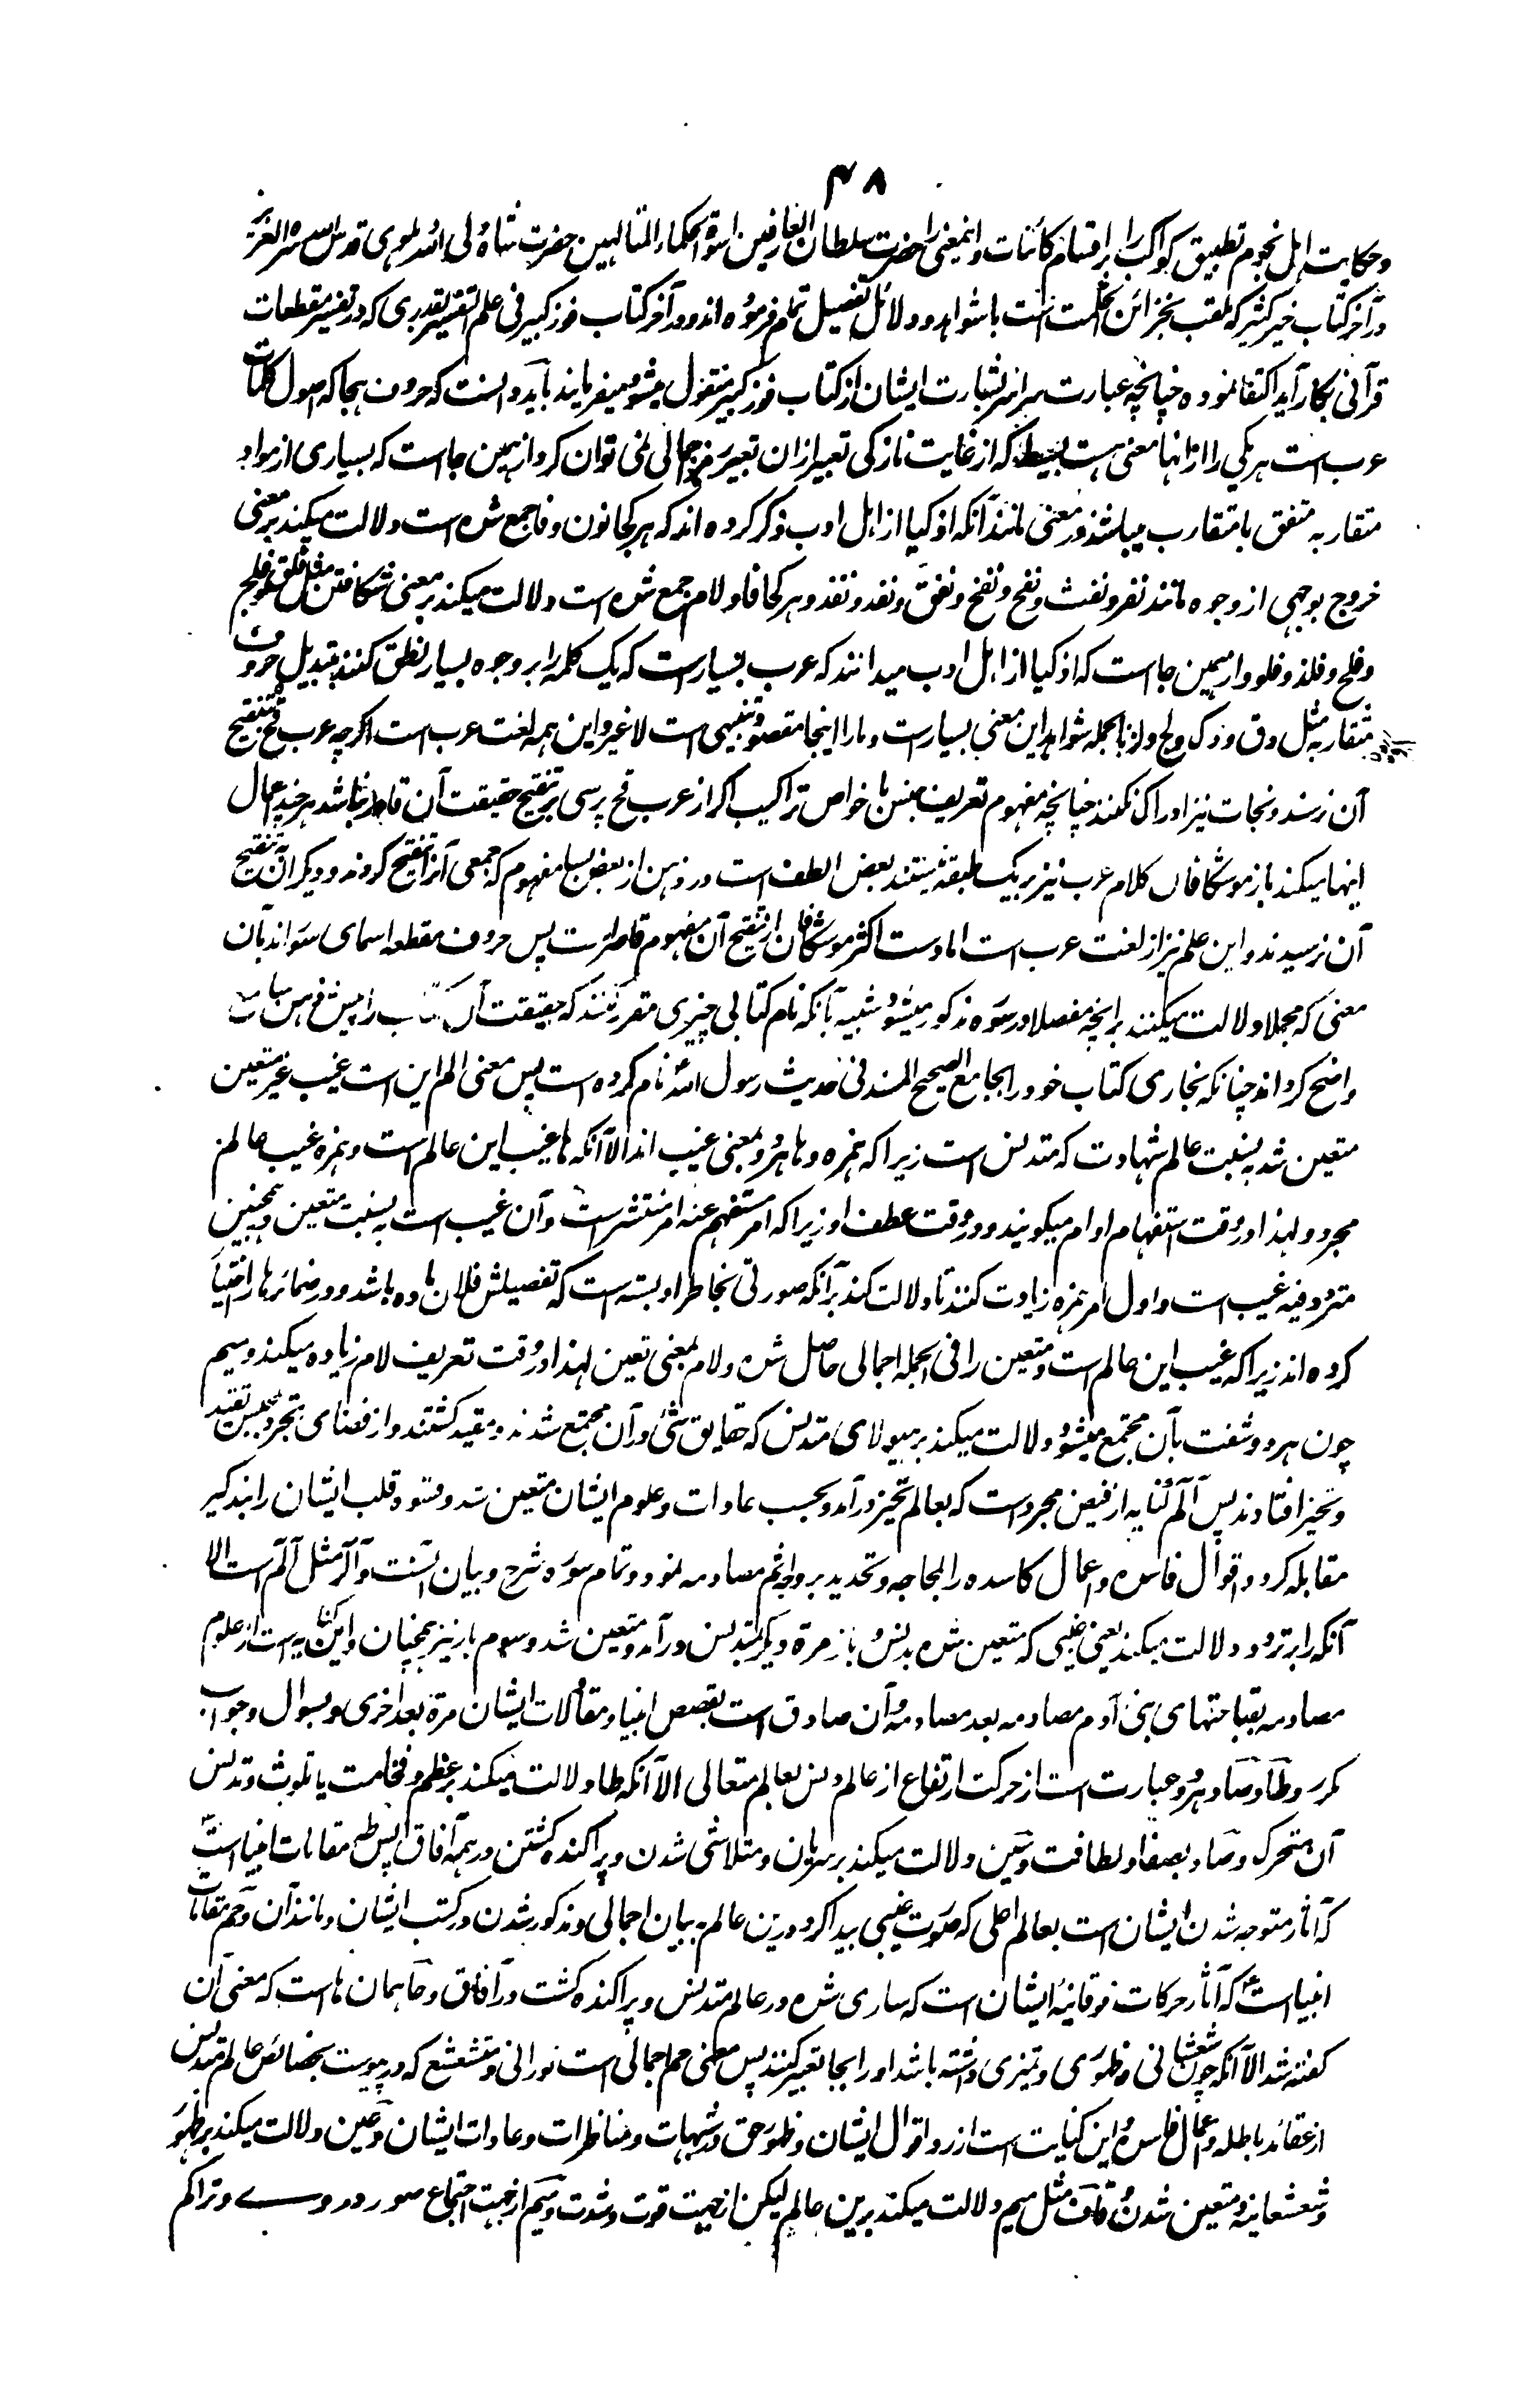 ۴۸
و حکایت اہل نجوم تطبیق کواکب را بر اقسام کائنات و اینمعنی را حضرت سلطان العارفین اسوۃ الحکماء المتالہین حضرت شاہ ولی اللہ دہلوی قدس اللہ سرہ العزیز
در آخر کتاب خیر کثیر کہ ملقب بخزائن الحکمت است با شواہد و دلائل تفصیل تمام فرمودہ اند و در آخر کتاب فوز کبیر فی علم التفسیر بقدری کہ در تفسیر مقطعات
قرآنی بکار آید اکتفا نمودہ چنانچہ عبارت سراسر بشارت ایشان از کتاب فوز کبیر منقول میشود میفرمایند باید دانست کہ حروف ہجا کہ اصول کلمات
عرب است ہر یکی را ازانہا معنی ہست بسیط کہ از غایت نازکی تعبیر ازان تعبیر رمز اجمالی نمی توان کرد از ہمین جا است کہ بسیاری از مواد
متقاربہ متفق یا متقارب میباشند در معنی مانند آنکہ اذکیا از اہل ادب ذکر کردہ اند کہ ہر کجا نون و فا جمع شدہ است دلالت میکند بر معنی
خروج بوجہی از وجوہ مانند نفر و نفث و نفح و نفخ و نفق و نفد و نفذ و ہر کجا فا و لام جمع شدہ است دلالت میکند بر معنی شگافتن مثل فلق و فلج
و فلح و فلذ و فلو و از ہمین جا است کہ اذکیا از اہل ادب میدانند کہ عرب بسیار است کہ یک کلمہ را بر وجوہ بسیار نطق کنند بتبدیل حروف
متقاربہ مثل دق و دک و لج و لز بالجملہ شواہد این معنی بسیار است و ما را اینجا مقصود تنبیہی است لا غیر و این ہمہ لغت عرب است اگرچہ عرب قح بتنقیح
آن نرسد و نحات نیز ادراک نکنند چنانچہ مفہوم تعریف جنس یا خواص تراکیب اگر از عرب قح پرسی بر تنقیح حقیقت آن قادر نباشد ہر چند اعمال
اینہا میکند باز موشگافان کلام عرب نیز بر یک طبقہ نیستند بعض الطف است در ذہن از بعض بسا مفہوم کہ جمعی آنرا تنقیح کردند و دیگران بہ تنقیح
آن نرسیدند و این علم نیز از لغت عرب است اما دست اکثر موشگافان از تنقیح آن مفہوم قاصر است پس حروف مقطعہ اسمای سور اند بآن
معنی کہ مجملا دلالت میکنند بر انچہ مفصلا در سورہ مذکور میشود شبیہ بآنکہ نام کتابی چیزی مقرر کنند کہ حقیقت آن کتاب را پیش ذہن سامع
واضح گرداند چنانکہ بخاری کتاب خود را الجامع الصحیح المسند فی حدیث رسول اللہ نام کردہ است پس معنی الم این است غیب غیر متعین
متعین شد بہ نسبت عالم شہادت کہ متدنس است زیرا کہ ہمزہ و ہا ہر دو بمعنی غیب اند الا آنکہ ہا غیب این عالم است و ہمزہ غیب عالم
مجرد و لہذا در وقت استفہام او ام میگویند و در وقت عطف او زیرا کہ امر مستفہم عنہ امر منتشر است و آن غیب است بہ نسبت متعین و ہمچنین
متردد فیہ غیب است و اول امر ہمزہ زیادت کنند تا دلالت کند بر آنکہ صورتی بخاطر او بستہ است کہ تفصیلش فلان مادہ باشد و در ضمائر ہا را اختیار
کردہ اند زیرا کہ غیب این عالم است و متعین را فی الجملہ اجمالی حاصل شدہ و لام بمعنی تعین لہذا در وقت تعریف لام زیادہ میکنند و میم
چون ہر دو شفت بآن مجتمع میشود دلالت میکند بر ہیولای متدنس کہ حقایق شتی در آن مجتمع شدند و مقید گشتند و از فضای تجرد بمحبس تقید
و تحیز افتادند پس الم کنایہ از فیض مجرد است کہ بعالم تحیز در آمد و بحسب عادات و علوم ایشان متعین شد و قسوہ قلب ایشان را بتذکیر
مقابلہ کرد و اقوال فاسدہ و اعمال کاسدہ را بمحاجہ و تحدید بر و اثم مصادمہ نمود و تمام سورہ شرح و بیان آنست و الر مثل الم است الا
آنکہ را بر تردد دلالت میکند یعنی غیبی کہ متعین شدہ بدنس و باز مرۃ دیگر بتدنس در آمد و متعین شد و سوم بار نیز ہمچنان و این کنایہ است از علوم
مصادمہ بقباحتہای بنی آدم مصادمہ بعد مصادمہ و آن صادق است بقصص انبیا و مقالات ایشان مرۃ بعد اخری و بسوال و جواب
مکرر و طا و صاد ہر دو عبارت است از حرکت ارتفاع از عالم دنس بعالم متعالی الا آنکہ طا دلالت میکند بر عظم و فخامت یا تلوث و تدنس
آن متحرک و صاد بصفا و لطافت و سین دلالت میکند بر سریان و متلاشی شدن و پراگندہ گشتن در ہمہ آفاق پس طہ مقامات انبیا است
کہ آثار متوجہ شدن ایشان است بعالم اعلی کہ صورت غیبی پیدا کرد درین عالم بہ بیان اجمالی و مذکور شدن در کتب ایشان و مانند آن و طسم مقامات
انبیا است کہ آثار حرکات فوقانیہ ایشان است کہ ساری شدہ در عالم متدنس و پراگندہ گشت در آفاق و حا ہمان ہا است کہ معنی آن
گفتہ شد الا آنکہ چون شعشانی و ظہوری و تمیزی داشتہ باشد او را بحا تعبیر کنند پس معنی حم اجمالی است نورانی و متشعشع کہ در پیوست بخصائص عالم متدنس
از عقائد باطلہ و اعمال فاسدہ و این کنایت است از رد اقوال ایشان و ظہور حق در شبہات و مناظرات و عادات ایشان و عین دلالت میکند بر ظہور
و شعشعانیہ و متعین شدن و قاف مثل میم دلالت میکند برین عالم لیکن از جہت قوت و شدت و میم از جہت اجتماع صور در وے و تراکم